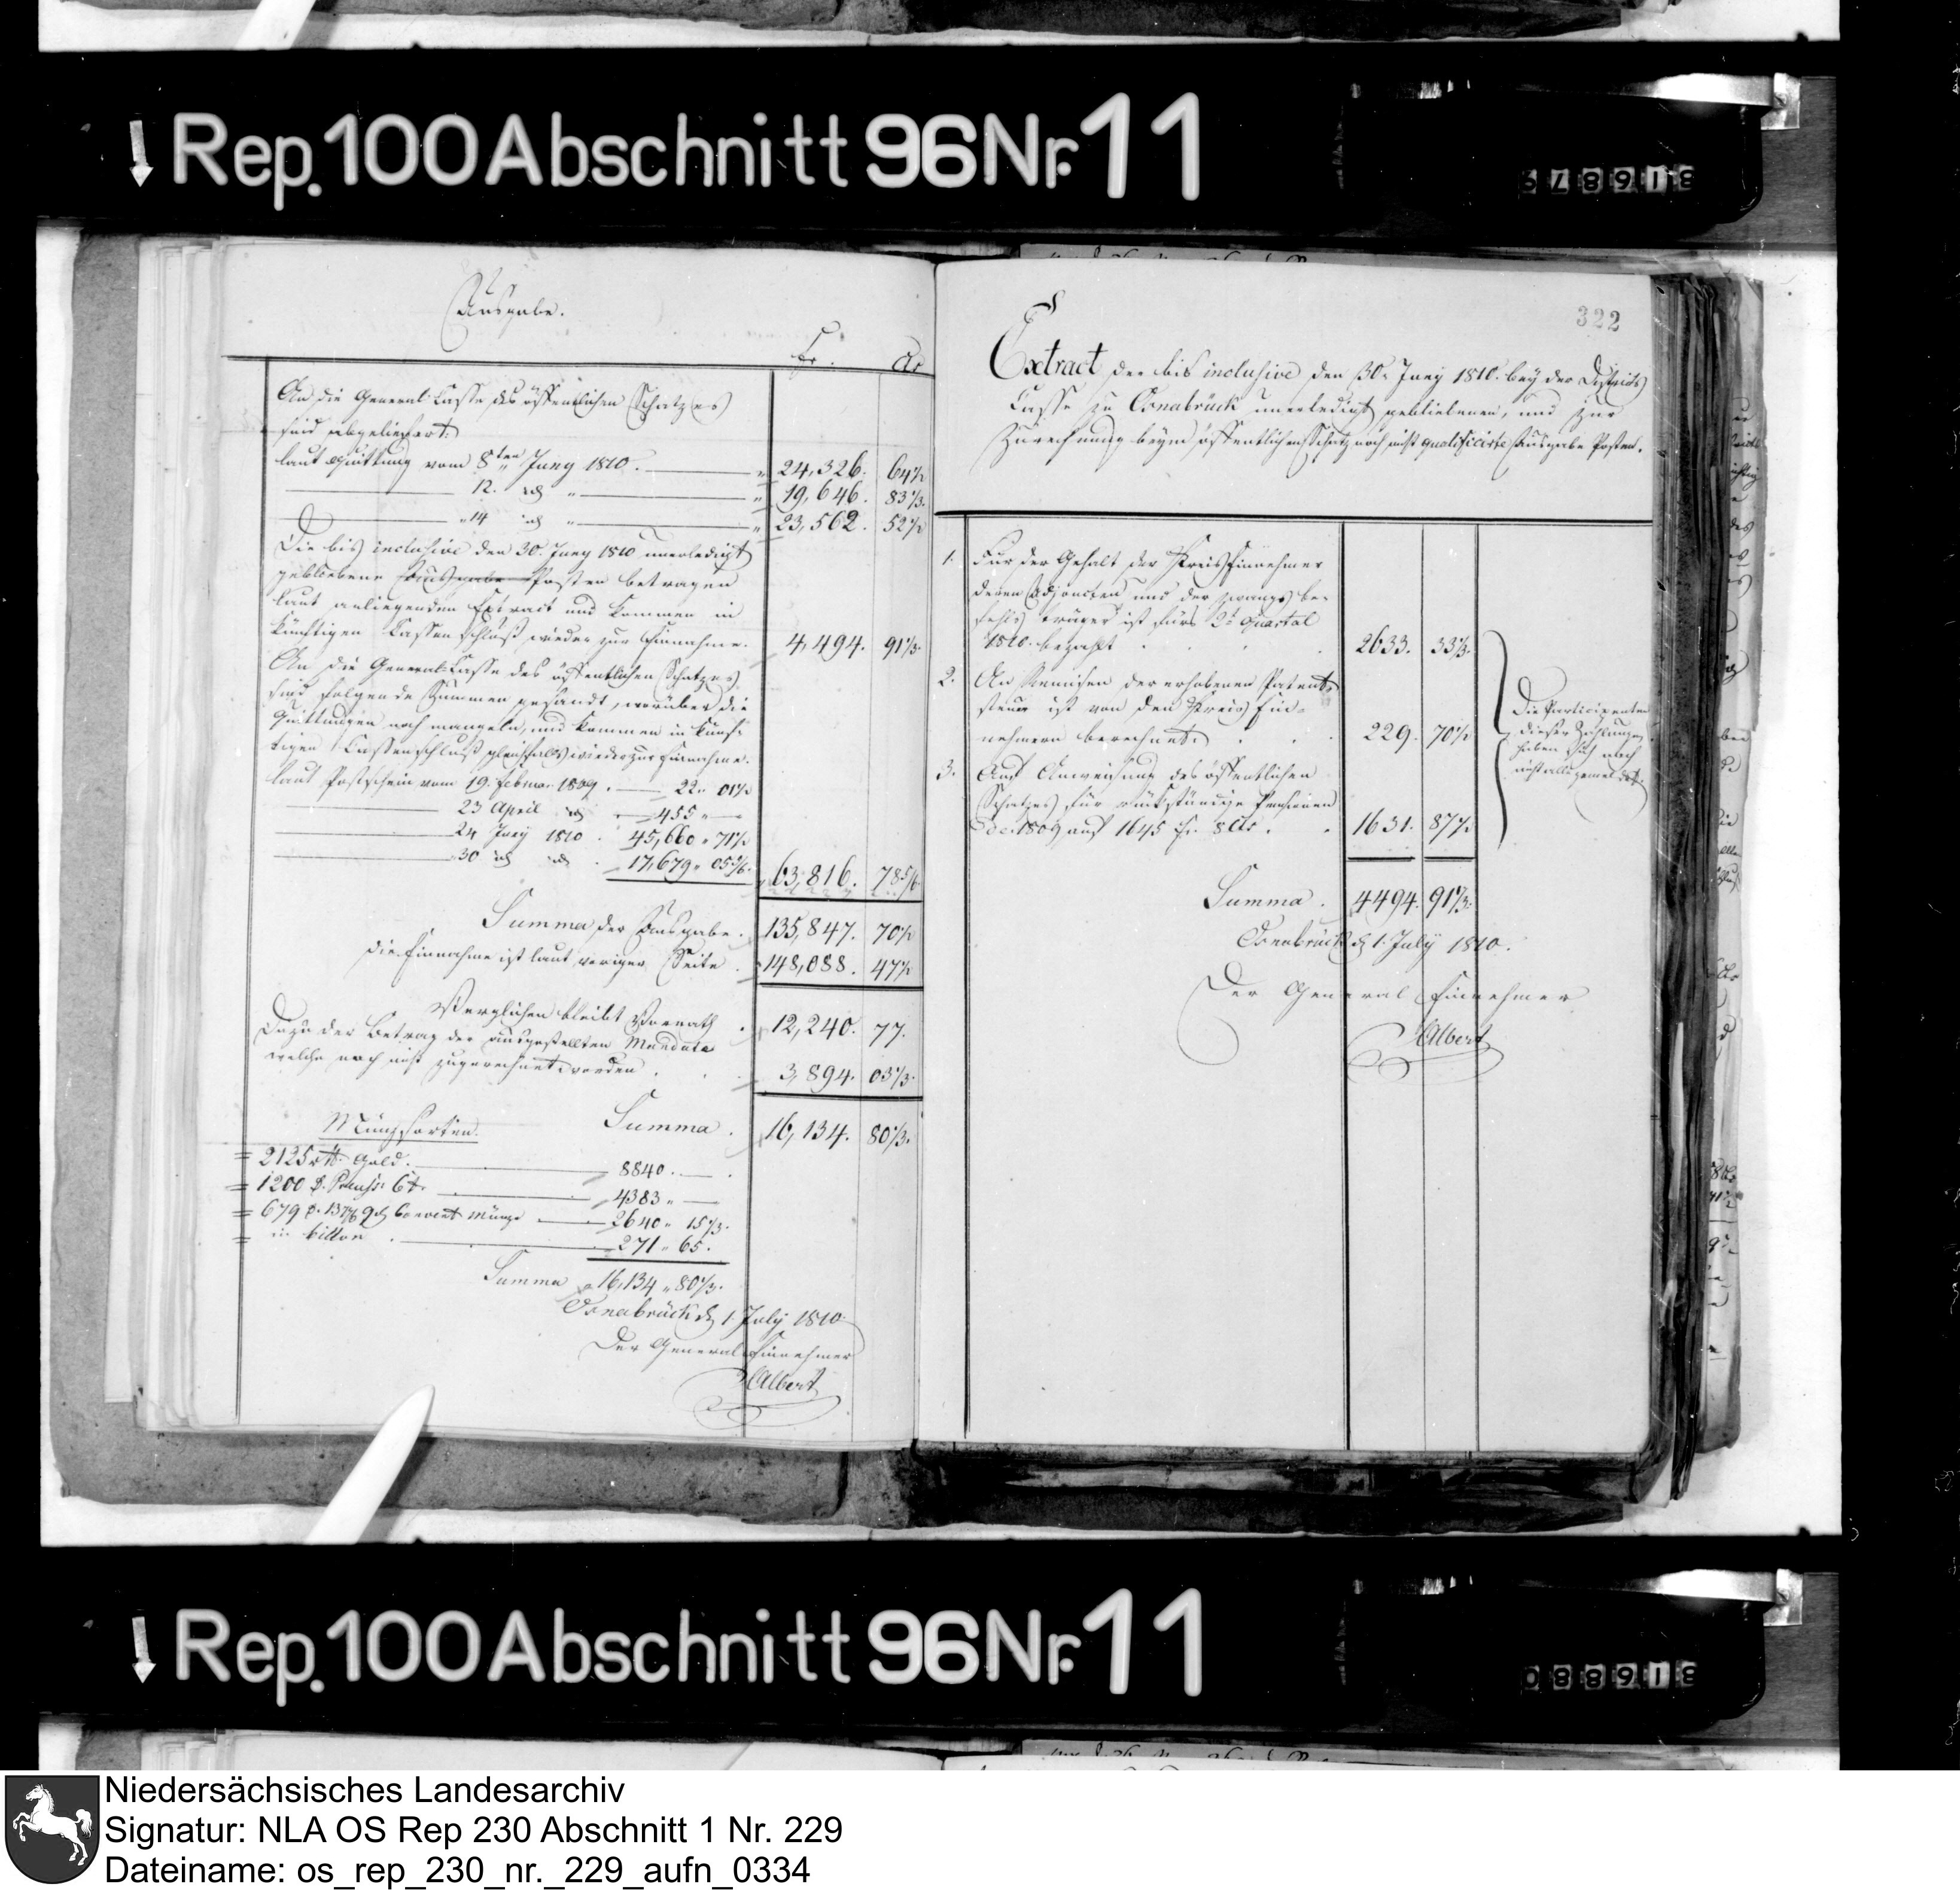 Rep. 100 Abschnitt 96 Nr. 11
Ausgabe.
fr. Cts
An die General-Casse des öffentlichen Schatzes
sind abgeliefert:
laut Quittung vom 8ten Juny 1810. 24,326. 64 1/2
12. id " 19,646. 83 1/3.
" 14 id " 23,562. 52 1/2
Die bis inclusive den 30. Juny 1810 unerledigt
gebliebene Ausgabe-Posten betragen
laut anliegenden Extract und kommen in
künftigen Cassenschluß wieder zur Einnahme. 4,494. 91 1/3.
An die General-Casse des öffentlichen Schatzes
sind folgende Summen gesandt, worüber die
Quittungen noch mangeln, und kommen in künf-
tigen Cassenschluß gleichfalls wieder zur Einnahme.
laut Postschein vom 19. Februar 1809. 22 " 01 1/2
23 April id 455 "
24 Juny 1810. 45,660 " 71 1/2
30 id id 17,679 " 05 5/6.
63,816. 78 5/6.
Summa der Ausgabe. 135,847. 70 1/2
die Einnahme ist laut voriger Seite. 148,088. 47 1/2
Verglichen bleibt Vorrath 12,240. 77.
Dazu der Betrag der ausgestellten Mandate
welche noch nicht zugerechnet worden. 3,894. 03 1/3.
Summa. 16,134. 80 1/3.
Münzsorten.
2125 rt. Gold. 8840.
1200 d. Preuss. Ct. 4383 "
679 d. Convent Münze 2640 " 15 1/3.
in billon 271 " 65.
Summa 16,134 " 80 1/3.
Osnabrück d 1 July 1810
Der General Einnehmer
Albert
322
Extract der bis inclusive den 30. Juny 1810. bey der Districts
Casse zu Osnabrück unerledigt gebliebenen, und zur
Zurechnung beym öffentlichen Schatz noch nicht qualificirte Ausgabe Posten.
1. Für der Gehalt der Kreis Einnehmer
deren Adjoncten und der Zwangs be-
fehls träger ist fürs 2t Quartal
1810. bezahlt 2633. 33 1/3.
2. An Remisen der erhobenen Patent-
steuer ist von den Kreis Ein-
nehmern berechnet. 229. 70 1/2
3. Auf Anweisung des öffentlichen
Schatzes für rückständige Pensionen
de 1809 auf 1645 fr. 8 Cts. 1631. 87 1/2
Die Participenten
dieser Zahlungen
haben sich noch
nicht alle gemeldet.
Summa. 4494. 91 1/3.
Osnabrück d 1. July 1810.
Der General Einnehmer
Albert
Rep. 100 Abschnitt 96 Nr. 11
Niedersächsisches Landesarchiv
Signatur: NLA OS Rep 230 Abschnitt 1 Nr. 229
Dateiname: os_rep_230_nr._229_aufn_0334